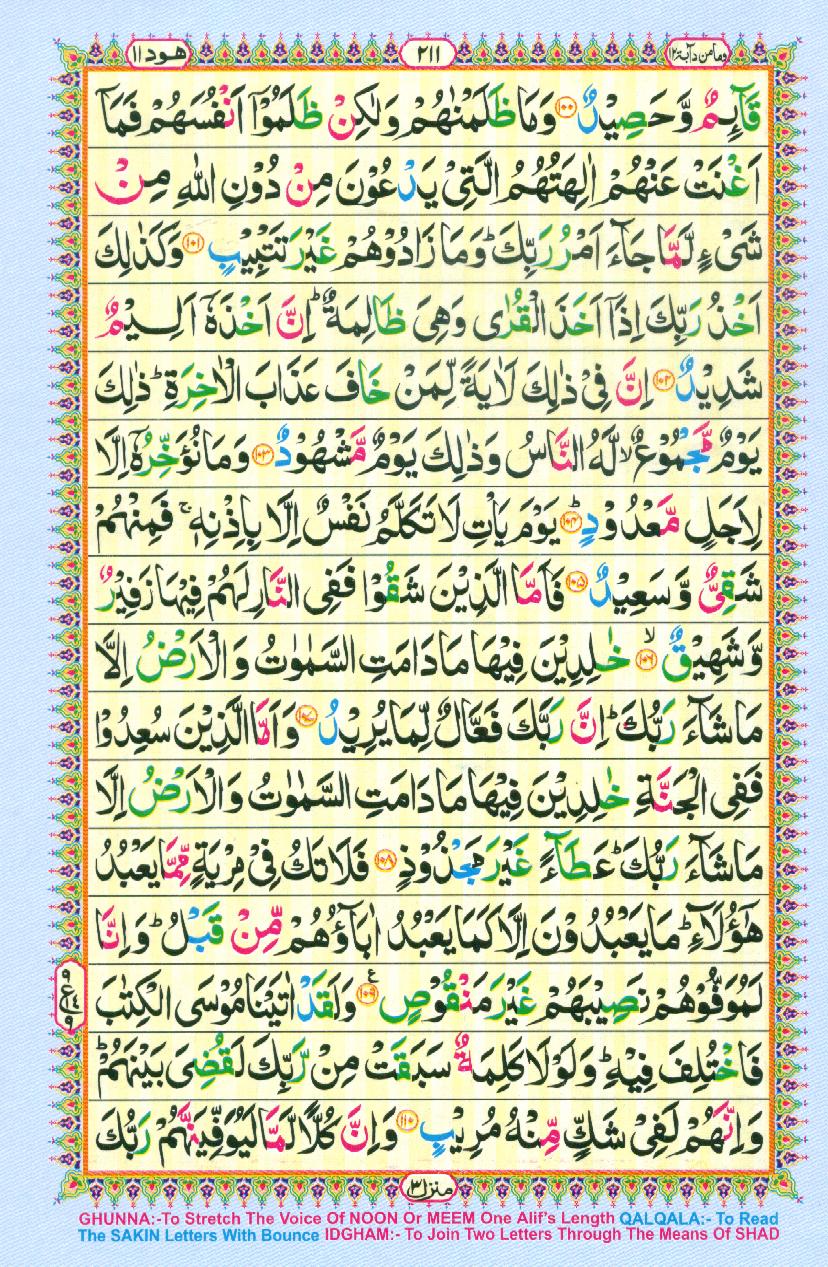 وما من دآبة ١٢
٢١١
هود ١١
قَآئِمٌ وَّحَصِيْدٌ ﴿۱۰۰﴾ وَمَا ظَلَمْنٰهُمْ وَلٰكِنْ ظَلَمُوْۤا اَنْفُسَهُمْ فَمَاۤ
اَغْنَتْ عَنْهُمْ اٰلِهَتُهُمُ الَّتِيْ يَدْعُوْنَ مِنْ دُوْنِ اللّٰهِ مِنْ
شَيْءٍ لَّمَّا جَآءَ اَمْرُ رَبِّكَ ؕ وَمَا زَادُوْهُمْ غَيْرَ تَتْبِيْبٍ ﴿۱۰۱﴾ وَكَذٰلِكَ
اَخْذُ رَبِّكَ اِذَاۤ اَخَذَ الْقُرٰى وَهِيَ ظَالِمَةٌ ؕ اِنَّ اَخْذَهٗۤ اَلِيْمٌ
شَدِيْدٌ ﴿۱۰۲﴾ اِنَّ فِيْ ذٰلِكَ لَاٰيَةً لِّمَنْ خَافَ عَذَابَ الْاٰخِرَةِ ؕ ذٰلِكَ
يَوْمٌ مَّجْمُوْعٌ ۙ لَّهُ النَّاسُ وَذٰلِكَ يَوْمٌ مَّشْهُوْدٌ ﴿۱۰۳﴾ وَمَا نُؤَخِّرُهٗۤ اِلَّا
لِاَجَلٍ مَّعْدُوْدٍ ؕ ﴿۱۰۴﴾ يَوْمَ يَاْتِ لَا تَكَلَّمُ نَفْسٌ اِلَّا بِاِذْنِهٖ ۚ فَمِنْهُمْ
شَقِيٌّ وَّسَعِيْدٌ ﴿۱۰۵﴾ فَاَمَّا الَّذِيْنَ شَقُوْا فَفِي النَّارِ لَهُمْ فِيْهَا زَفِيْرٌ
وَّشَهِيْقٌ ۙ ﴿۱۰۶﴾ خٰلِدِيْنَ فِيْهَا مَا دَامَتِ السَّمٰوٰتُ وَالْاَرْضُ اِلَّا
مَا شَآءَ رَبُّكَ ؕ اِنَّ رَبَّكَ فَعَّالٌ لِّمَا يُرِيْدُ ﴿۱۰۷﴾ وَاَمَّا الَّذِيْنَ سُعِدُوْا
فَفِي الْجَنَّةِ خٰلِدِيْنَ فِيْهَا مَا دَامَتِ السَّمٰوٰتُ وَالْاَرْضُ اِلَّا
مَا شَآءَ رَبُّكَ ؕ عَطَآءً غَيْرَ مَجْذُوْذٍ ﴿۱۰۸﴾ فَلَا تَكُ فِيْ مِرْيَةٍ مِّمَّا يَعْبُدُ
هٰۤؤُلَآءِ ؕ مَا يَعْبُدُوْنَ اِلَّا كَمَا يَعْبُدُ اٰبَآؤُهُمْ مِّنْ قَبْلُ ؕ وَاِنَّا
لَمُوَفُّوْهُمْ نَصِيْبَهُمْ غَيْرَ مَنْقُوْصٍ ﴿۱۰۹﴾ وَلَقَدْ اٰتَيْنَا مُوْسَى الْكِتٰبَ
فَاخْتُلِفَ فِيْهِ ؕ وَلَوْلَا كَلِمَةٌ سَبَقَتْ مِنْ رَّبِّكَ لَقُضِيَ بَيْنَهُمْ ؕ
وَاِنَّهُمْ لَفِيْ شَكٍّ مِّنْهُ مُرِيْبٍ ﴿۱۱۰﴾ وَاِنَّ كُلًّا لَّمَّا لَيُوَفِّيَنَّهُمْ رَبُّكَ
منزل ٣
GHUNNA:-To Stretch The Voice Of NOON Or MEEM One Alif's Length QALQALA:- To Read
The SAKIN Letters With Bounce IDGHAM:- To Join Two Letters Through The Means Of SHAD